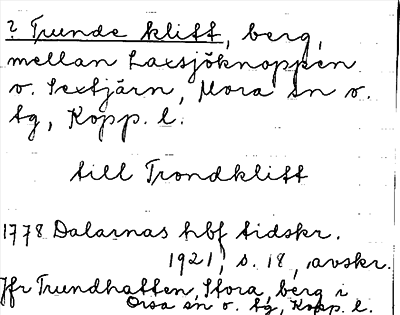 ? Trunde klitt, berg,
mellan Laxsjöknoppen
o. Sextjärn, Mora sn o.
tg, Kopp. l.
till Trondklitt
1778 Dalarnas hbf tidskr.
1921, s. 18, avskr.
Jfr Trundhatten, Stora, berg i
Orsa sn o. tg, Kopp. l.